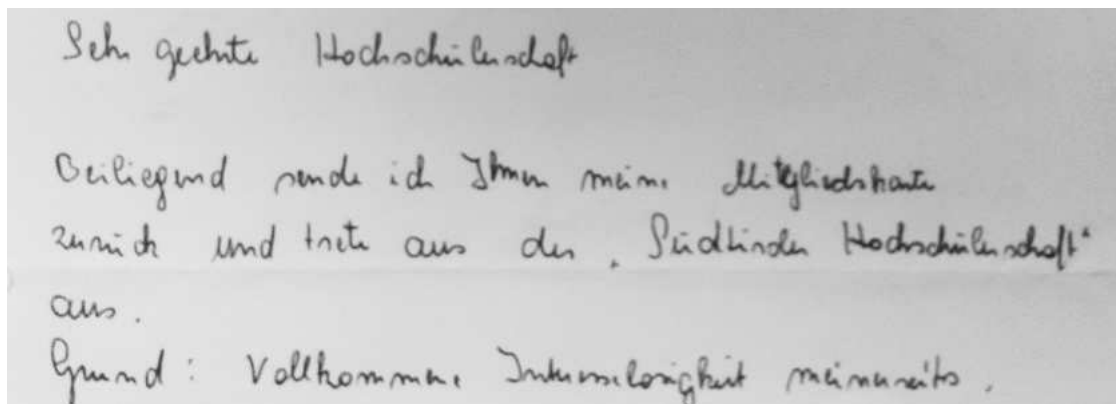 Sehr geehrte Hochschülerschaft
Beiliegend sende ich Ihnen meine Mitgliedskarte
zurück und trete aus der „Südtiroler Hochschülerschaft“
aus.
Grund: Vollkommene Interesselosigkeit meinerseits.